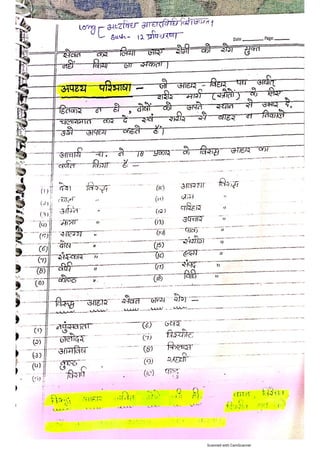 Date ______ Page ______
सेवन कर लिया जाए रोगी को रोग मुक्त
नहीं किया जा सकता।
अपथ्य परिभाषा - जो आहार - विहार पथ अर्थात्
शरीर मार्ग (स्रोतो) के लिए
हितकर न हो, दोषों को अपने स्थान से उभार दे,
चलायमान कर दे एवं शरीर से बाहर न निकाले
उसे अपथ्य कहते हैं।
आचार्य च. ने 18 प्रकार के विरूद्ध आहार का
वर्णन किया है -
(1) देश विरूद्ध (10) अवस्था विरूद्ध
(2) काल " (11) क्रम "
(3) अग्नि " (12) परिहार "
(4) मात्रा " (13) उपचार "
(5) सात्म्य " (14) पाक "
(6) दोष " (15) संयोग "
(7) संस्कार " (16) हृदय "
(8) वीर्य " (17) संपद् "
(9) कोष्ठ " (18) विधि "
विरूद्ध आहार सेवन जन्य रोग -
(1) नपुंसकता (6) ज्वर
(2) जलोदर (7) विस्फोट
(3) आमविष (8) किलास
(4) कुष्ठ (9) ग्रहणी
(5) विसर्प (10) पाण्डु
विरूद्ध आहार
Scanned with CamScanner